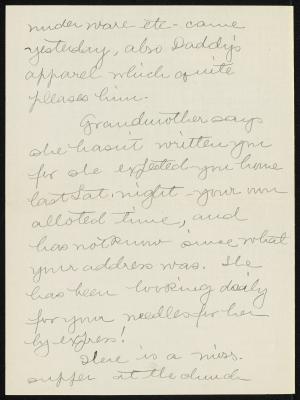 under ware etc - came
yesterday, also Daddy's
apparel which quite
pleases him.
Grandmother says
she hasn't written you
for she expected you home
last Sat. night - your own
alloted time, and
has not know since what
your address was. She
has been looking daily
for your needles for her
by express!
There is a miss.
supper at the church